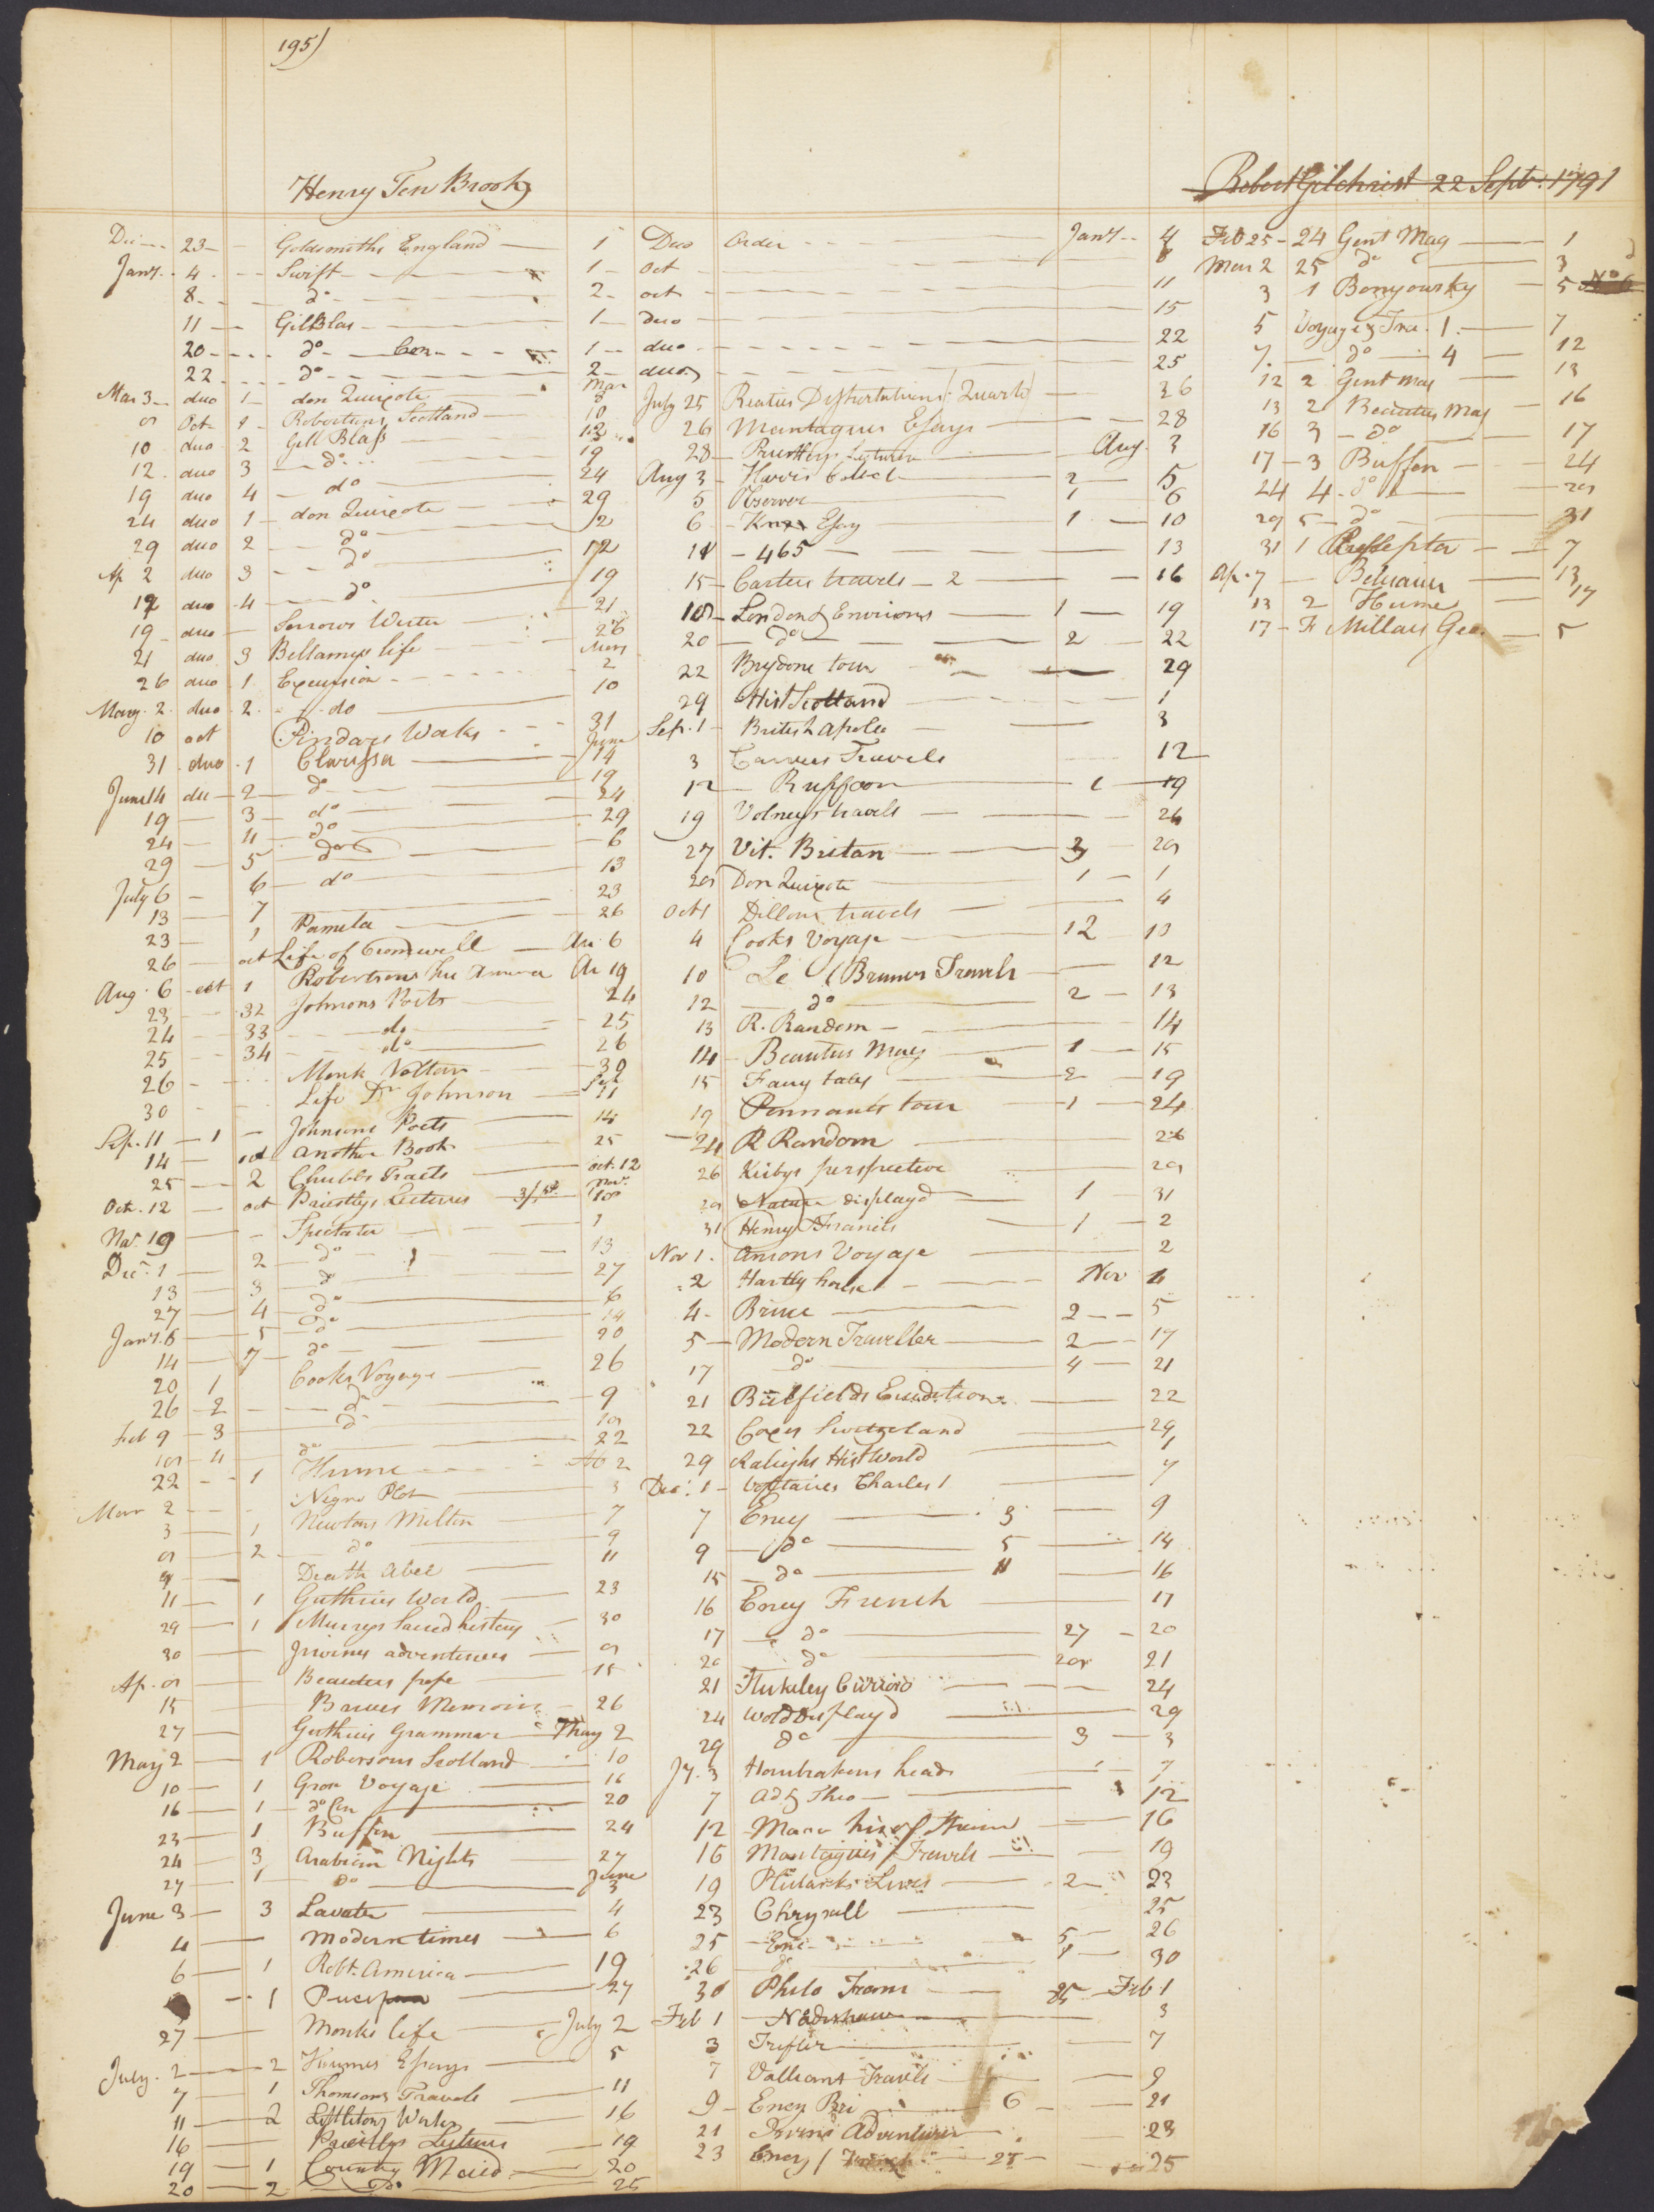 195)
Henry Ten Brook
Robert Gilchrist 22 Sept. 1791
Dec 23 Goldsmiths England 1
Jany. 4 Swift 1
8 do 2
11 Gil Blas 1
20 do 1
22 do 2
Mar 3 duo 1 don Quixote Mar 8
Oct 1 Robertsons Scotland 10
10 duo 2 Gill Blass 12
12 duo 3 do 19
19 duo 4 do 24
24 duo 1 don Quixote 29
29 duo 2 do 2
Ap 2 duo 3 do 12
12 duo 4 do 19
19 duo Sorrows Werter 21
21 duo 3 Bellamys life 26
26 duo 1 Excursion May 2
May 2 duo 2 do 10
10 oct Pindars Works 31
31 duo 1 Clarissa June 14
June 14 du 2 do 19
19 3 do 24
24 4 do 29
29 5 do 6
July 6 6 do 13
13 7 23
23 1 Pamela 26
26 oct Life of Cromwell Au 6
Aug. 6 oct 1 Robertsons his America Au 19
23 32 Johnsons Poets 24
24 33 do 25
25 34 do 26
26 Monk 30
30 Life Dr Johnson Sep 11
Sep. 11 1 Johnsons Poets 14
14 oct another Book 25
25 2 Chubbs Tracts oct. 12
Oct. 12 oct Priestlys Lectures Nov.
Nov. 19 Spectator 1
Dec. 1 2 do 13
13 3 do 27
27 4 do 6
Jany. 6 5 do 14
14 7 do 20
20 1 Cooks Voyage 26
26 2 do 9
Feb 9 3 do
4 do 22
22 1 Hume 2
Mar 2 Negro Plot 3
3 1 Newtons Milton 7
2 do 9
9 Death Abel 11
11 1 Guthries World 23
29 1 Murrys Sacred history 30
30 Irwines adventures
Ap. Beauties pope 15
15 Memoirs 26
27 Guthries Grammar May 2
May 2 1 Robersons Scotland 10
10 1 Voyage 16
16 1 do 20
23 1 Buffon 24
24 3 Arabian Nights 27
27 1 do June 3
June 3 3 Lavater 4
4 Modern times 6
6 1 Robt. America 19
1 27
27 Monks life July 2
July 2 2 Humes Essays 5
7 1 Thomsons Travels 11
11 2 Lyttletons Works 16
16 Priestlys Lectures 19
19 1 Country Maid 20
20 2 do 25
Duo Order Jany. 4
Oct 8
oct 11
duo 15
duo 22
duo 25
July 25 Dissertations Quarto 26
26 Montagues Essays 28
28 Priestleys Lectures Aug. 3
Aug 3 Harris Collect 2 5
5 Observer 1 6
6 Knox Essay 1 10
11 465 13
15 Carters travels 2 16
18 London & Environs 1 19
20 do 2 22
22 Brydone tour 29
29 Hist Scotland 1
Sep. 1 British Apolo 3
3 Carvers Travels 12
12 Buffoon 1 19
19 Volneys travels 26
27 Vit. Britan 3
Don Quixote 1 1
Oct 1 Dillons travels 4
4 Cooks Voyage 12 10
10 Le Bruns Travels 12
12 do 2 13
13 R. Random 14
14 Beauties Mag 1 15
15 Fairy tales 2 19
19 Pennants tour 1 24
24 R Random 26
26 Kirbys perspective
Nature displayd 1 31
31 Henry & Francis 1 2
Nov 1. Ansons Voyage 2
2 Hartly house Nov 4
4 Bruce 2 5
5 Modern Traveller 2 17
17 do 4 21
21 Bielfields Erudition 22
22 Coxes Switzerland 29
29 Raleighs Hist World 1
Dec. 1 Voltaires Charles 1 7
7 Ency 3 9
9 do 5 14
15 do 11 16
16 Ency French 17
17 do 27 20
20 do 28 21
21 Stukeley Curiosa 24
24 World Displayd 29
29 do 3 3
Jy. 3 Houbrakens heads 1 7
7 Ad & Theo 12
12 16
16 Montagues Travels 19
19 Plutarks Lives 2 23
23 Chrysall 25
25 Enc 5 26
26 do 30
30 Philo Trans 25 Feb 1
Feb 1 3
3 Trifler 7
7 Valliant Travels 9
9 Ency Bri 6 21
21 Irvins Adventures 23
23 Ency French 27 25
Feb 25 24 Gent Mag 1
Mar 2 25 do 3
3 1 Benyousky 5 No 6
5 Voyage & Tra. 1. 7
7. do 4 12
12 2 Gent mag 13
13 2 Beauties Mag 16
16 3 do 17
17 3 Buffon 24
24 4 do
29 5 do 31
31 1 Preseptor 7
Ap. 7 Belisair 13
13 2 Hume 17
17 Millars Geo. 5